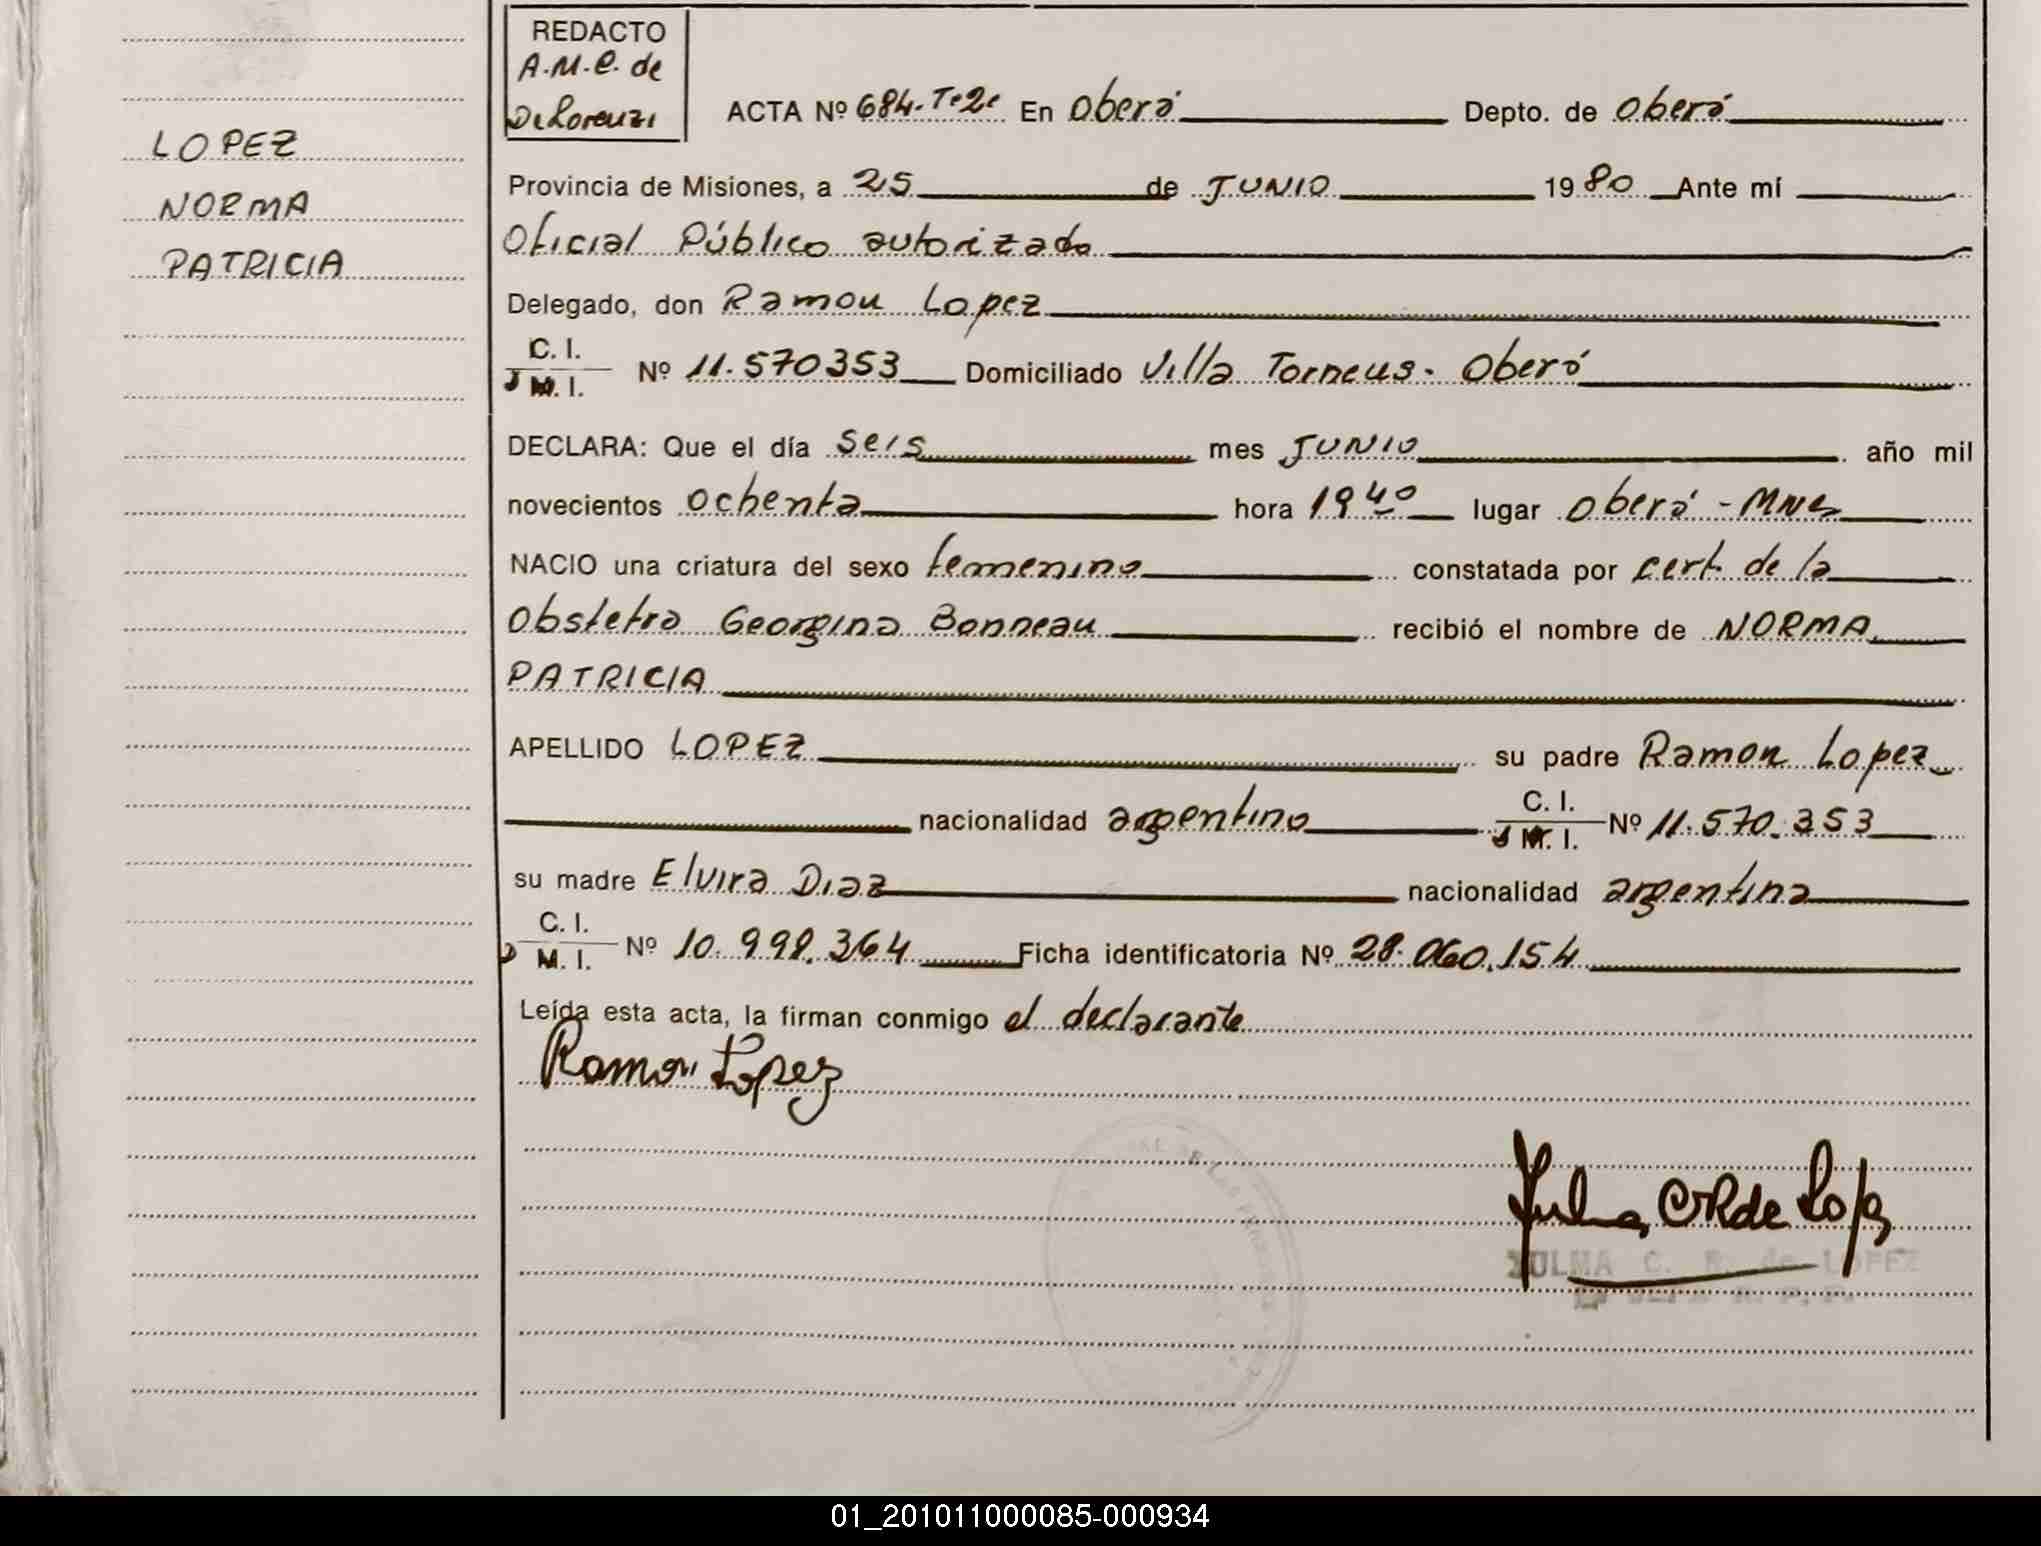 LOPEZ
NORMA
PATRICIA
REDACTO
A.M.C. de
De Lorenzi
ACTA Nº 684-Tº2º En Oberá Depto. de Oberá
Provincia de Misiones, a 25 de JUNIO 1980 Ante mí
Oficial Público autorizado
Delegado, don Ramon Lopez
C. I.
M. I. Nº 11.570353 Domiciliado Villa Torneus - Oberá
DECLARA: Que el día seis mes JUNIO año mil
novecientos ochenta hora 19 40 lugar Oberá - Mnes
NACIO una criatura del sexo femenino constatada por cert. de la
Obstetra Georgina Bonneau recibió el nombre de NORMA
PATRICIA
APELLIDO LOPEZ su padre Ramon Lopez
nacionalidad argentino C. I. M. I. Nº 11.570.353
su madre Elvira Diaz nacionalidad argentina
C. I.
M. I. Nº 10.998.364 Ficha identificatoria Nº 28.060.154
Leída esta acta, la firman conmigo el declarante
Ramon Lopez
de Lopez
ZULMA C. R. de LOPEZ
01_201011000085-000934